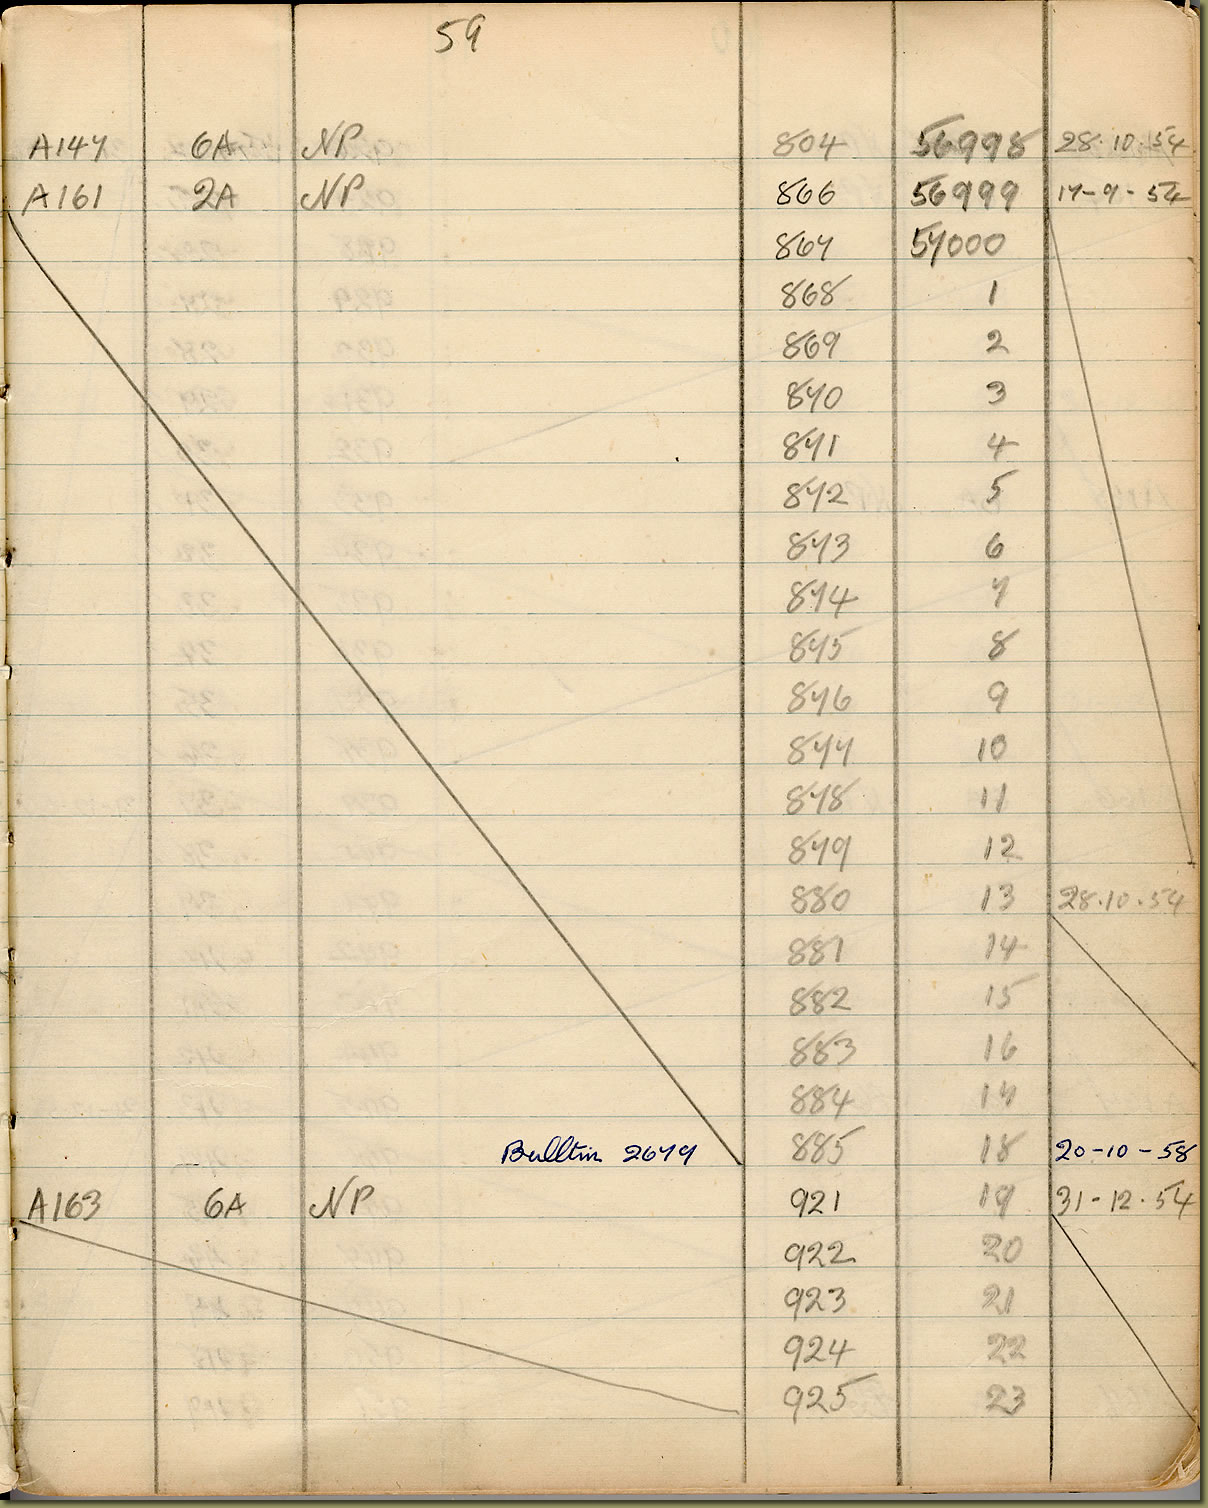 59
A147 6A NP 804 56998 28.10.54
A161 2A NP 866 56999 17-9-54
867 57000
868 1
869 2
870 3
871 4
872 5
873 6
874 7
875 8
876 9
877 10
878 11
879 12
880 13 28.10.54
881 14
882 15
883 16
884 17
Bulltin 2679 885 18 20-10-58
A163 6A NP 921 19 31-12.54
922 20
923 21
924 22
925 23